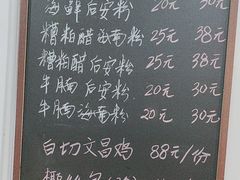 海鲜后安粉 20元 30元
糟粕醋海南粉 25元 38元
糟粕醋后安粉 25元 38元
牛腩后安粉 20元 30元
牛腩海南粉 20元 30元
白切文昌鸡 88元/份